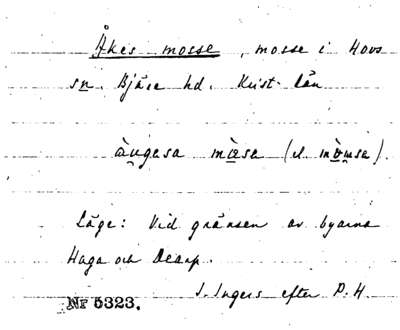 Åkes mosse, mosse i Hovs
sn. Bjäre hd. Krist. län
àu̯gesa mòsa (el mòu̯sa).
Läge: Vid gränsen av byarna
Haga och Dearp.
I. Ingers efter P. H.
Nr 5323.